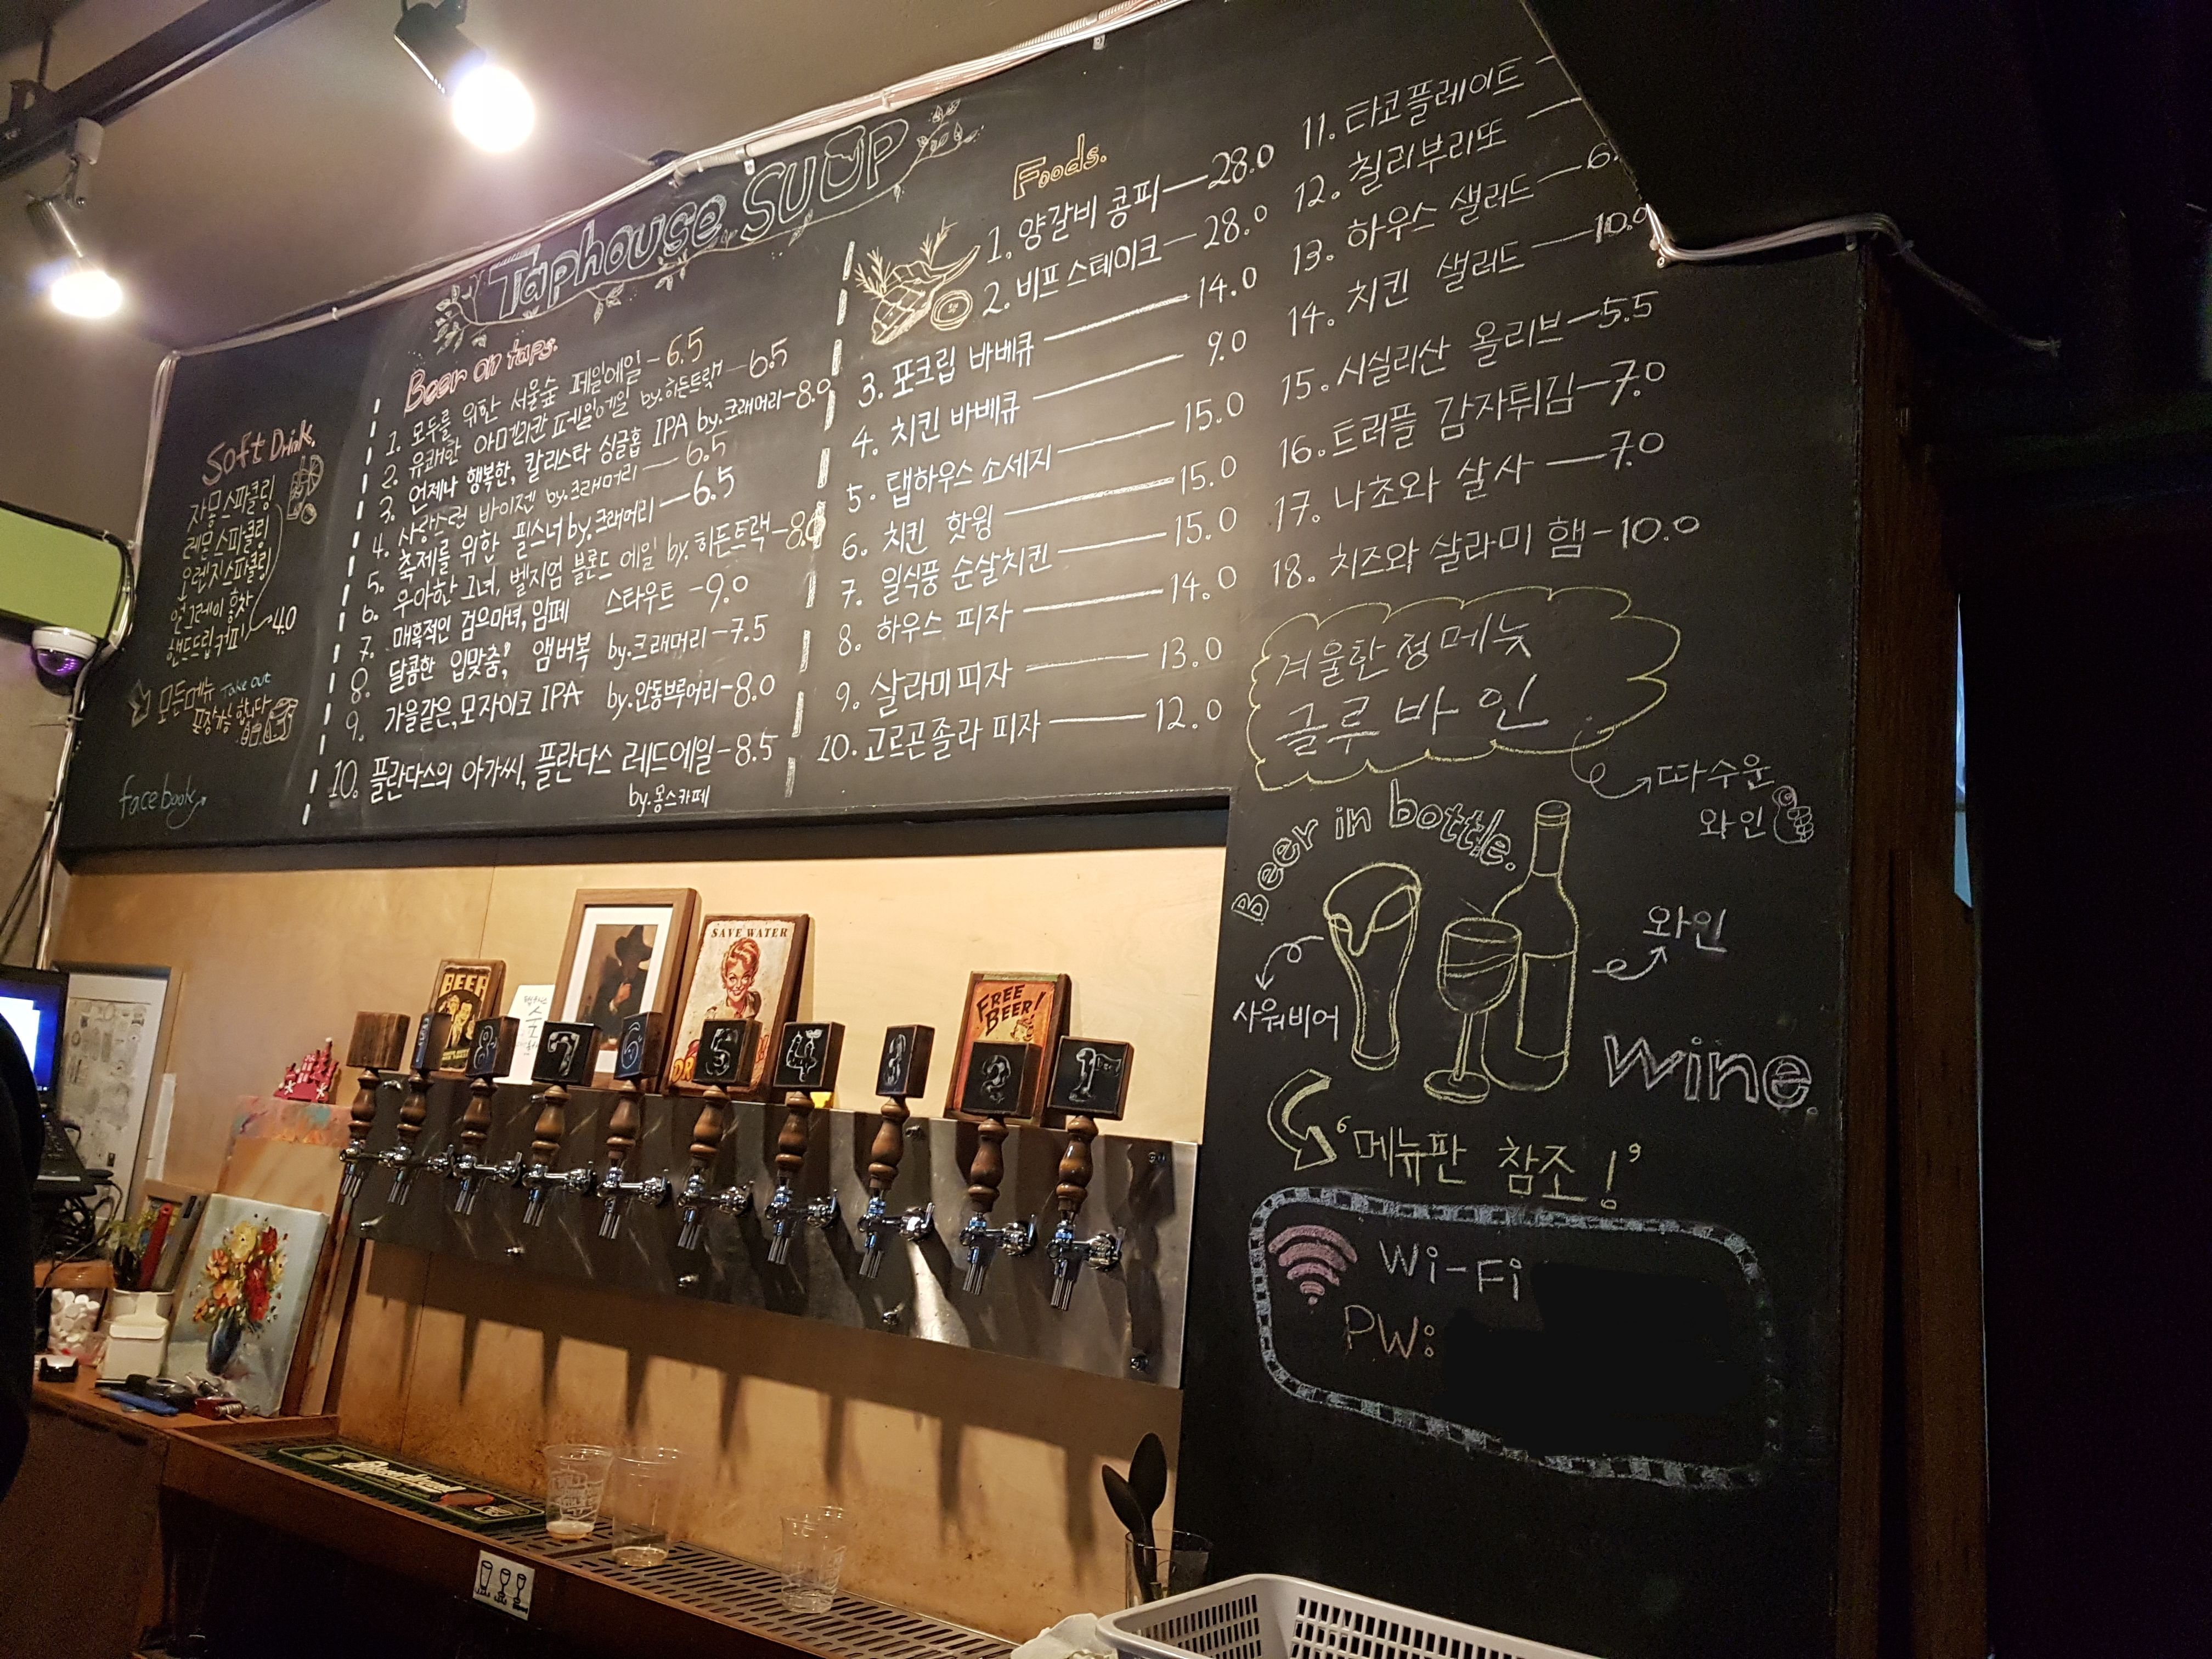 Taphouse SUUP
Soft Drink.
자몽스파클링
레몬스파클링
오렌지스파클링
얼그레이 홍차
핸드드립커피 4.0
모든메뉴 Take out
포장가능합니다
facebook
Beer on taps.
1. 모두를 위한 서울숲 페일에일 - 6.5
2. 유쾌한 아메리칸 페일에일 by.히든트랙 - 6.5
3. 언제나 행복한, 칼리스타 싱글홉 IPA by.크래머리 - 8.0
4. 사랑스런 바이젠 by.크래머리 - 6.5
5. 축제를 위한 필스너 by.크래머리 - 6.5
6. 우아한 그녀, 벨지엄 블론드 에일 by.히든트랙 - 8.0
7. 매혹적인 검은마녀, 임페 스타우트 - 9.0
8. 달콤한 입맞춤, 앰버복 by.크래머리 - 7.5
9. 가을같은, 모자이크 IPA by.안동브루어리 - 8.0
10. 플란다스의 아가씨, 플란다스 레드에일 - 8.5
by.몽스카페
Foods.
1. 양갈비 콩피 - 28.0
2. 비프스테이크 - 28.0
3. 포크립 바베큐 - 14.0
4. 치킨 바베큐 - 9.0
5. 탭하우스 소세지 - 15.0
6. 치킨 핫윙 - 15.0
7. 일식풍 순살치킨 - 15.0
8. 하우스 피자 - 14.0
9. 살라미피자 - 13.0
10. 고르곤졸라 피자 - 12.0
11. 타코플레이트 -
12. 칠리부리또 -
13. 하우스 샐러드 - 6.
14. 치킨 샐러드 - 10.0
15. 시실리산 올리브 - 5.5
16. 트러플 감자튀김 - 7.0
17. 나초와 살사 - 7.0
18. 치즈와 살라미 햄 - 10.0
겨울한정메뉴
글루바인
따수운
와인
Beer in bottle.
사워비어
와인
wine.
'메뉴판 참조!'
Wi-Fi
PW:
BEER
SAVE WATER
FREE
BEER!
8
7
6
5
4
3
2
1